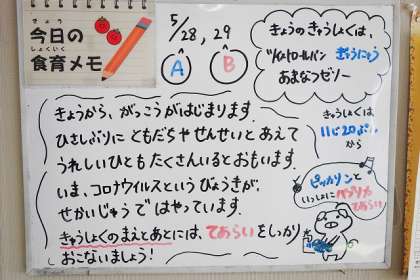 きょう
今日の
しょくいく
食育メモ
5/28, 29
A B
きょうのきゅうしょくは、
ツイストロールパン ぎゅうにゅう
あまなつゼリー
きゅうしょくは
11じ20ぷん
から
きょうから、がっこうがはじまります。
ひさしぶりに ともだちや せんせいと あえて
うれしいひとも たくさんいるとおもいます。
いま、コロナウイルスという びょうきが、
せかいじゅうで はやっています。
きゅうしょくのまえとあとには、てあらいをしっかり
おこないましょう!
ピッカリンと
いっしょに パプリカ
てあらい